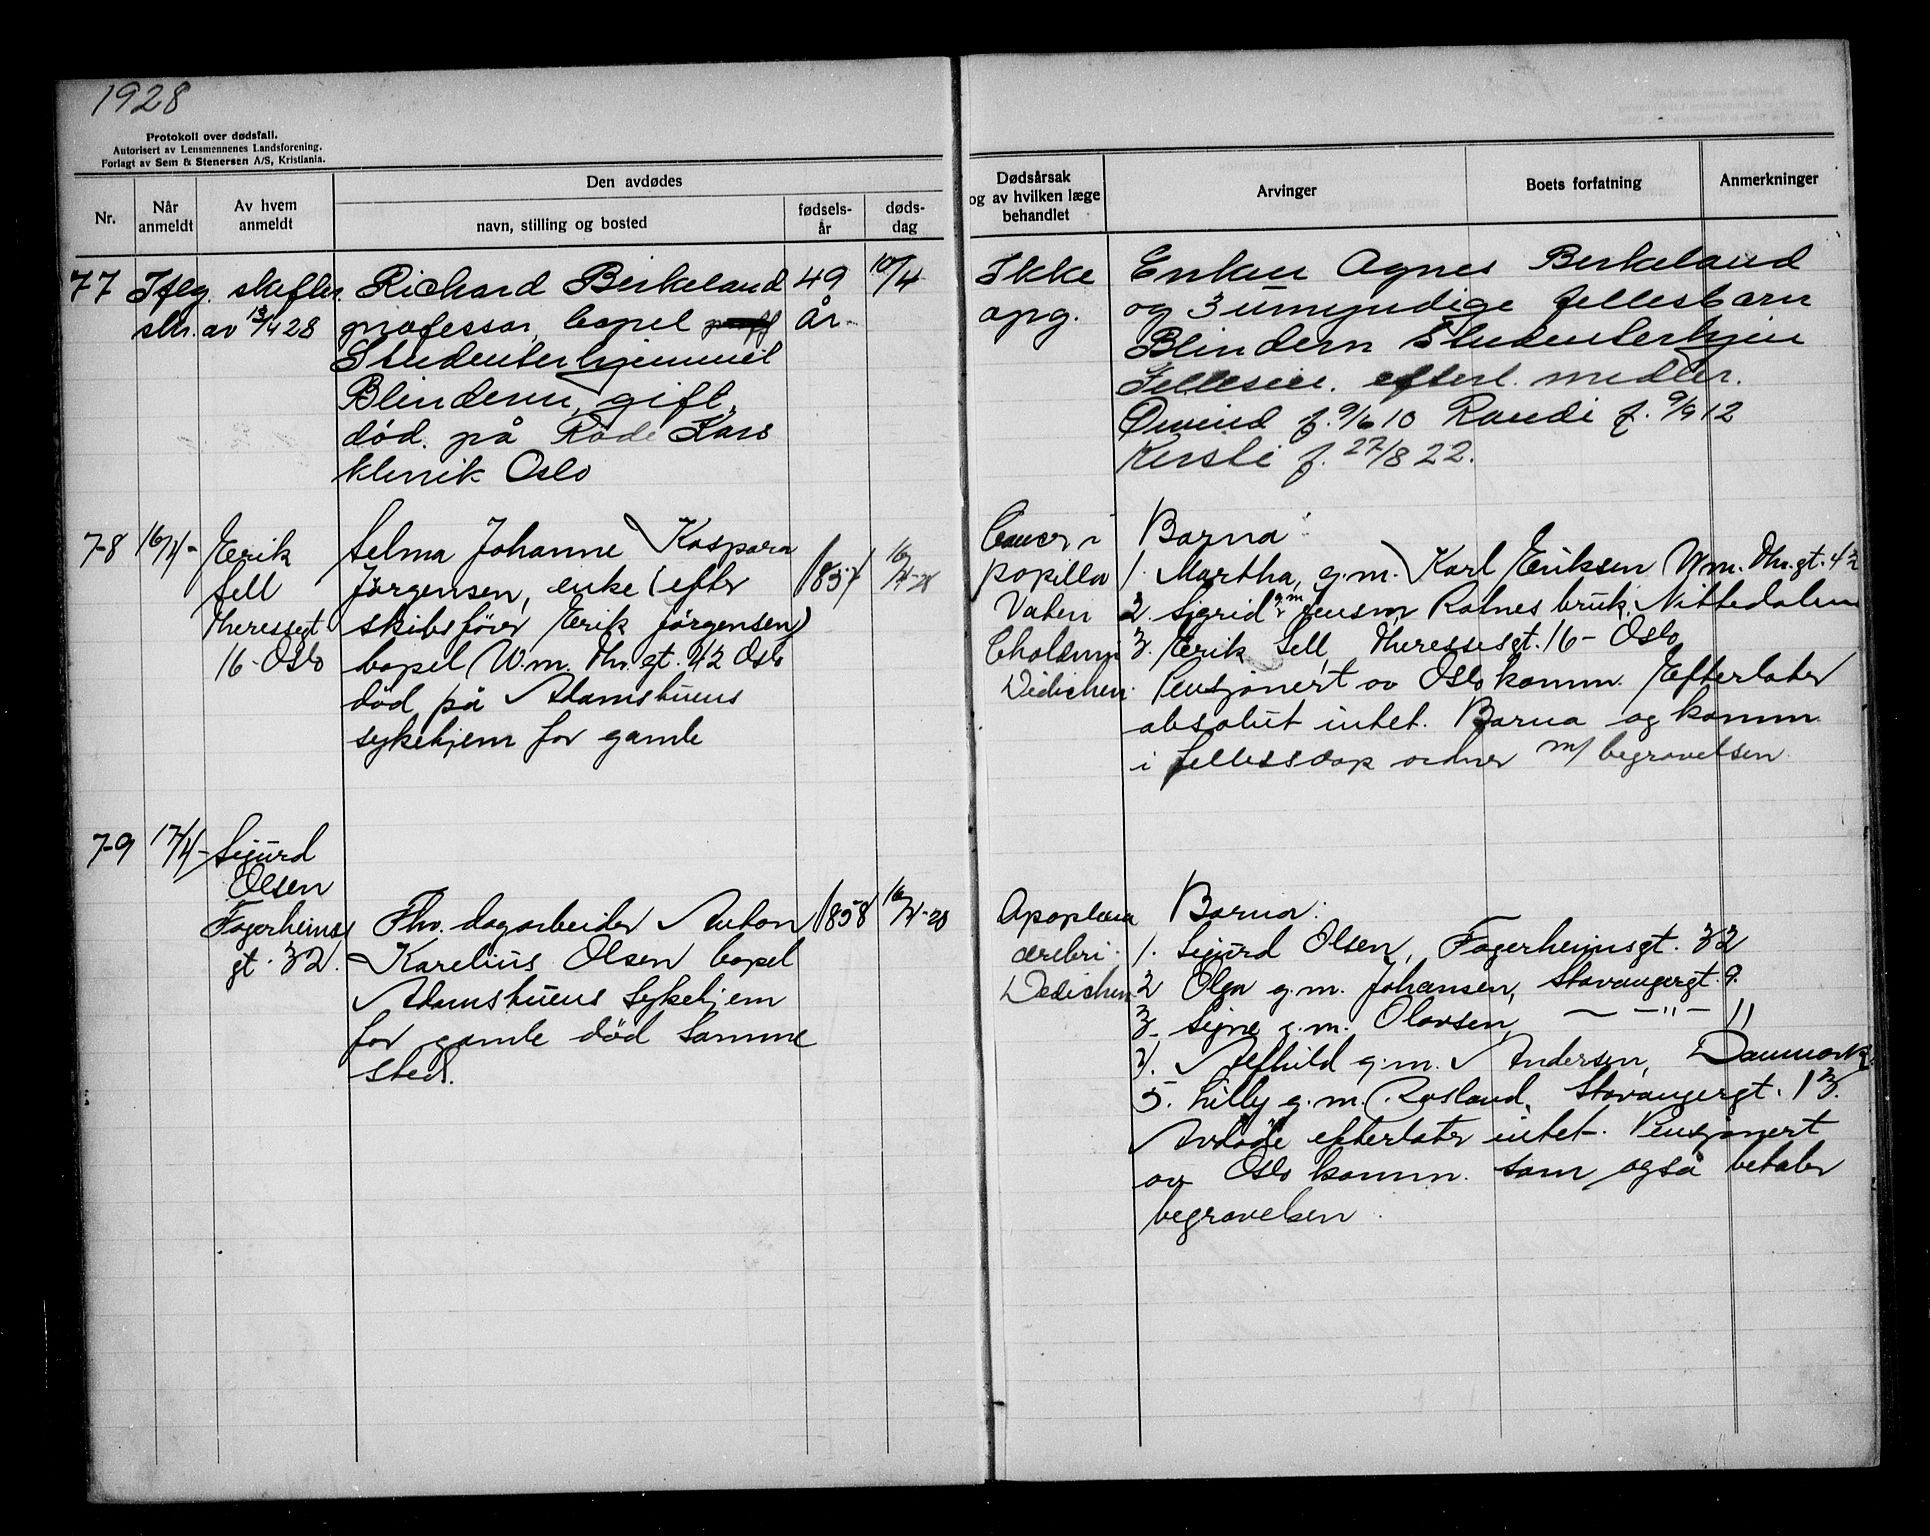 1928
Protokoll over dødsfall.
Autorisert av Lensmennenes Landsforening.
Forlagt av Sem & Stenersen A/S, Kristiania.
Nr.
Når anmeldt
Av hvem anmeldt
Den avdødes
navn, stilling og bosted
fødsels-år
døds-dag
Dødsårsak og av hvilken læge behandlet
Arvinger
Boets forfatning
Anmerkninger
77 Iflg. skifter
skr. av 13/4 28
Richard Birkeland
professor, bopel
Studenterhjemmet
Blindern, gift,
død på Røde Kors
klinik Oslo
49
år
10/4
Ikke
opg.
Enken Agnes Birkeland
og 3 umyndige fellesbarn
Blindern Studenterhjem
Felleseie. efterl. midler.
Øivind f. 9/6 10 Randi f. 9/9 12
Kirsti f. 27/8 22.
78 16/4 -
Erik
Sell
Theresesgt
16 - Oslo
Selma Johanne Kaspara
Jørgensen, enke (efter
skibsfører Erik Jørgensen)
bopel W.m. Thr.gt. 42 Oslo
død på Adamstuens
sykehjem for gamle
1857
16/4-28
Cancer
papilla
Vateri
Dedichen
Barna:
1. Martha, g.m. Karl Eriksen W.m. Thr.gt. 42
2. Sigrid g.m. Rotnes bruk, Nittedalen
3. Erik Sell, Theressesgt. 16 - Oslo
Pensjonert av Oslo komm. Efterlater
absolut intet. Barna og komm.
i fellesskap ordner m/ begravelsen.
79 17/4 -
Sigurd
Olsen
Fagerheims
gt. 32.
Fhv. dagarbeider Anton
Karelius Olsen bopel
Adamstuens Sykehjem
for gamle død samme
sted.
1858
16/4-28
Apoplexia
cerebri
Dedichen
Barna:
1. Sigurd Olsen, Fagerheimsgt. 32
2 Olga g.m. Johansen, Stavangergt. 9.
3. Signe g.m. Olavsen, — — " — "
4. Alfhild g.m. Andersen, Danmark.
5. Lilly g.m. Røsland, Stavangergt. 13.
Avdøde efterlater intet. Pensjonert
av Oslo komm. som også betaler
begravelsen.